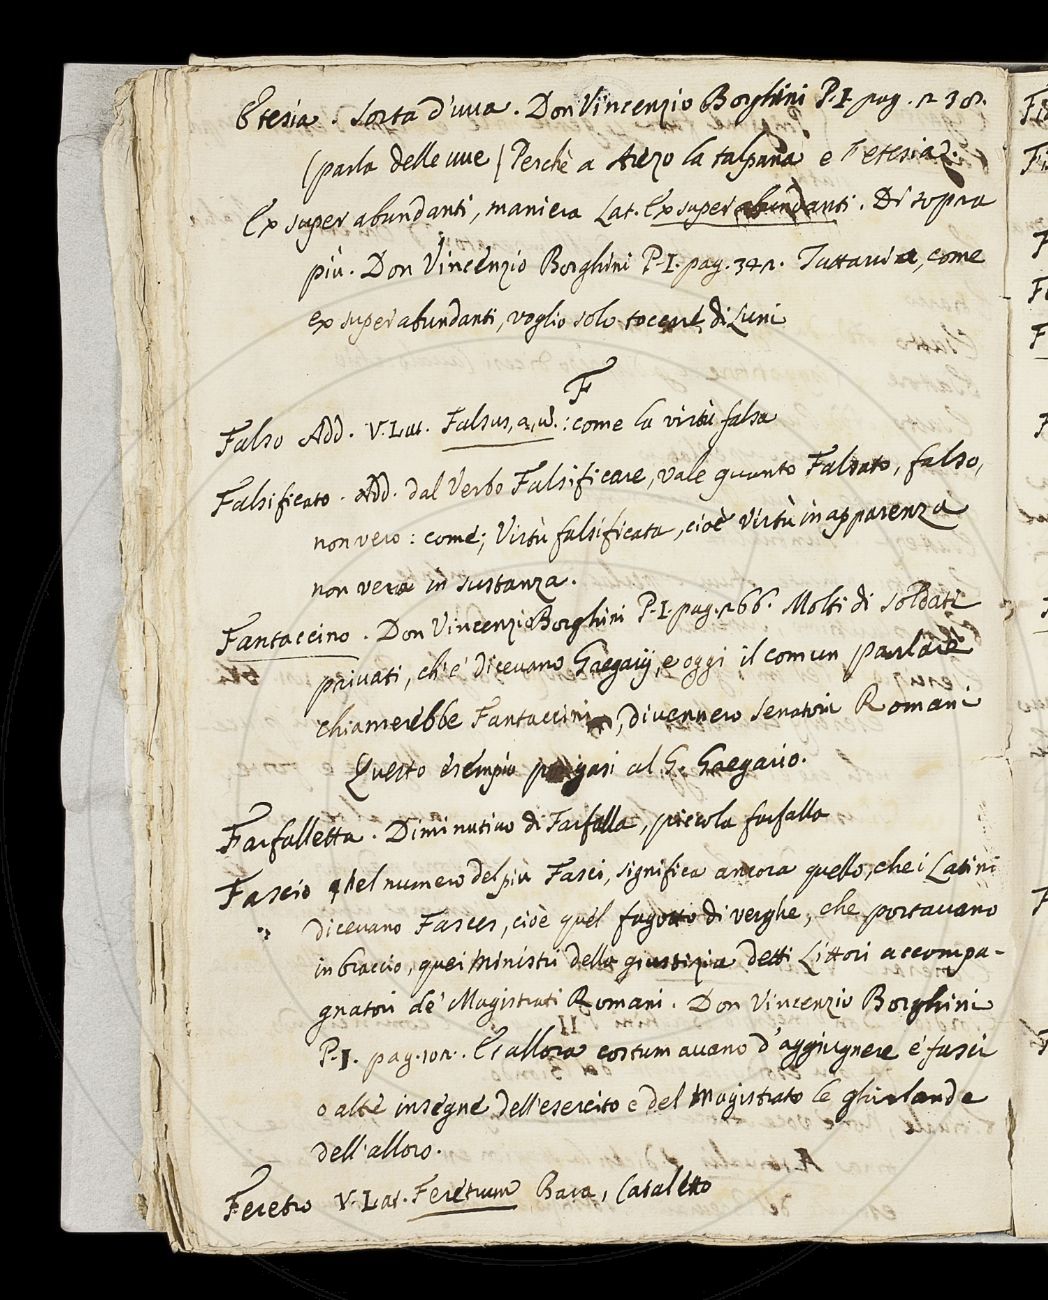 Etesia. Sorta d'uva. Don Vincenzio Borghini P. I. pag.
(parla delle uve) Perchè a Arezo la talpana e l'etesia.
Ex super abundanti, maniera Lat. Ex super abundanti. Di sopra
più. Don Vincenzio Borghini P. I. pag. 341. Tuttavia, come
ex super abundanti, voglio solo toccare di Luni
F
Falso Add. V. Lat. Falsus, a, u.: come la virtù falsa
Falsificato. Add. dal Verbo Falsificare, vale quanto Falsato, falso,
non vero: come; Virtù falsificata, cioè Virtù in apparenza
non vera in sustanza.
Fantaccino. Don Vincenzio Borghini P. I. pag. 166. Molti di soldati
privati, ch'e' dicevano Gregarij, e oggi il comun parlare
chiamerebbe Fantaccini, divennero Senatori Romani
Questo esempio pongasi al G. Gregario.
Farfalletta. Diminutivo di Farfalla, piccola farfalla
Fascio Nel numero del più Fasci, significa ancora quello, che i Latini
dicevano Fasces, cioè quel fagotto di verghe, che portavano
in braccio, quei Ministri della giustizia detti Littori accompa-
gnatori de' Magistrati Romani. Don Vincenzio Borghini
P. I. pag. 101. E allora costumavano d'aggiugnere e' fasci
o altre insegne dell'esercito e del Magistrato le ghirlande
dell'alloro.
Feretro V. Lat. Feretrum Bara, Cataletto